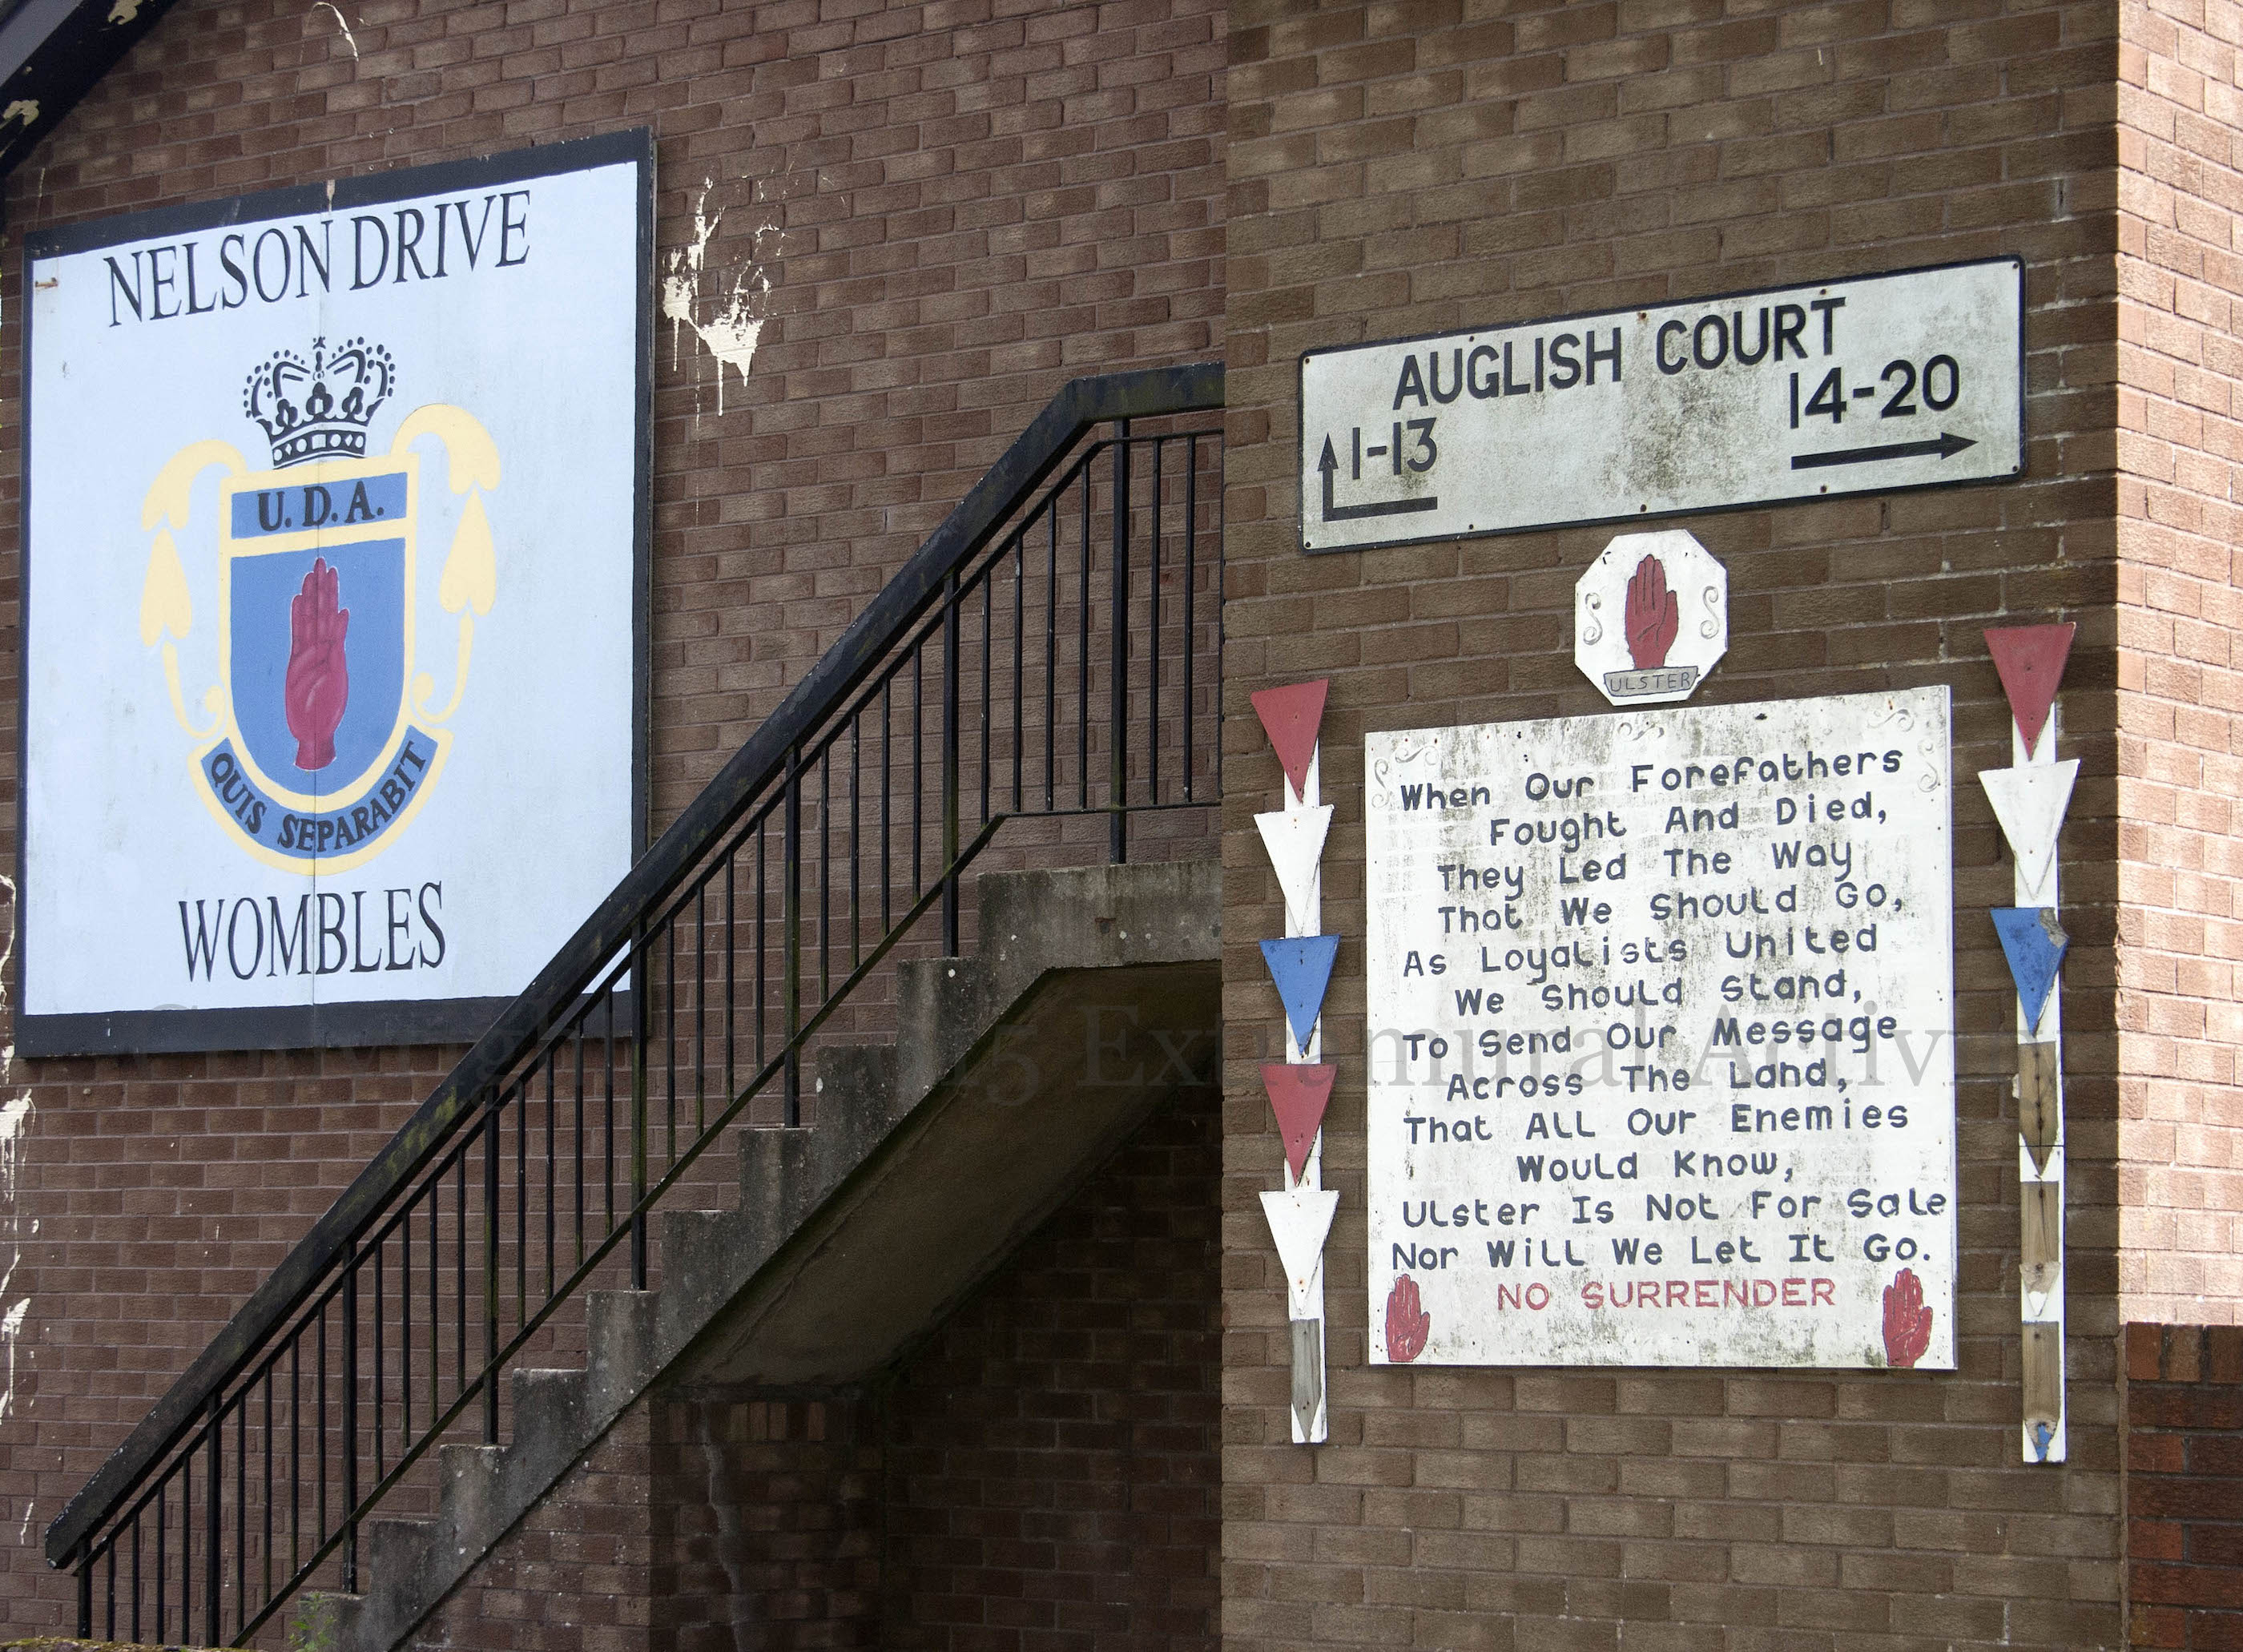 NELSON DRIVE
U.D.A.
QUIS SEPARABIT
WOMBLES
AUGLISH COURT
1-13
14-20
ULSTER
When Our Forefathers
Fought And Died,
They Led The Way
That We Should Go,
As Loyalists United
We Should Stand,
To Send Our Message
Across The Land,
That ALL Our Enemies
Would Know,
Ulster Is Not For Sale
Nor Will We Let It Go.
NO SURRENDER
Extramural